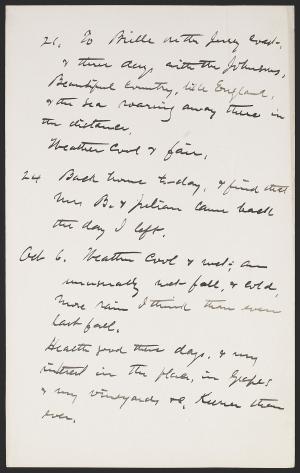 21. To Brielle on the Jersey coast,
& three days with the Johnsons,
Beautiful country, like England,
& the sea roaring away there in
the distance.
Weather cool & fair.
24 Back home to-day, & find that
Mrs B. & Julian came back
the day I left.
Oct 6. Weather cool & wet; an
unusually wet fall, & cold,
more rain I think than even
last fall.
Health good these days, & my
interest in the place, in Grapes
& my vineyards &c, keener than
ever.